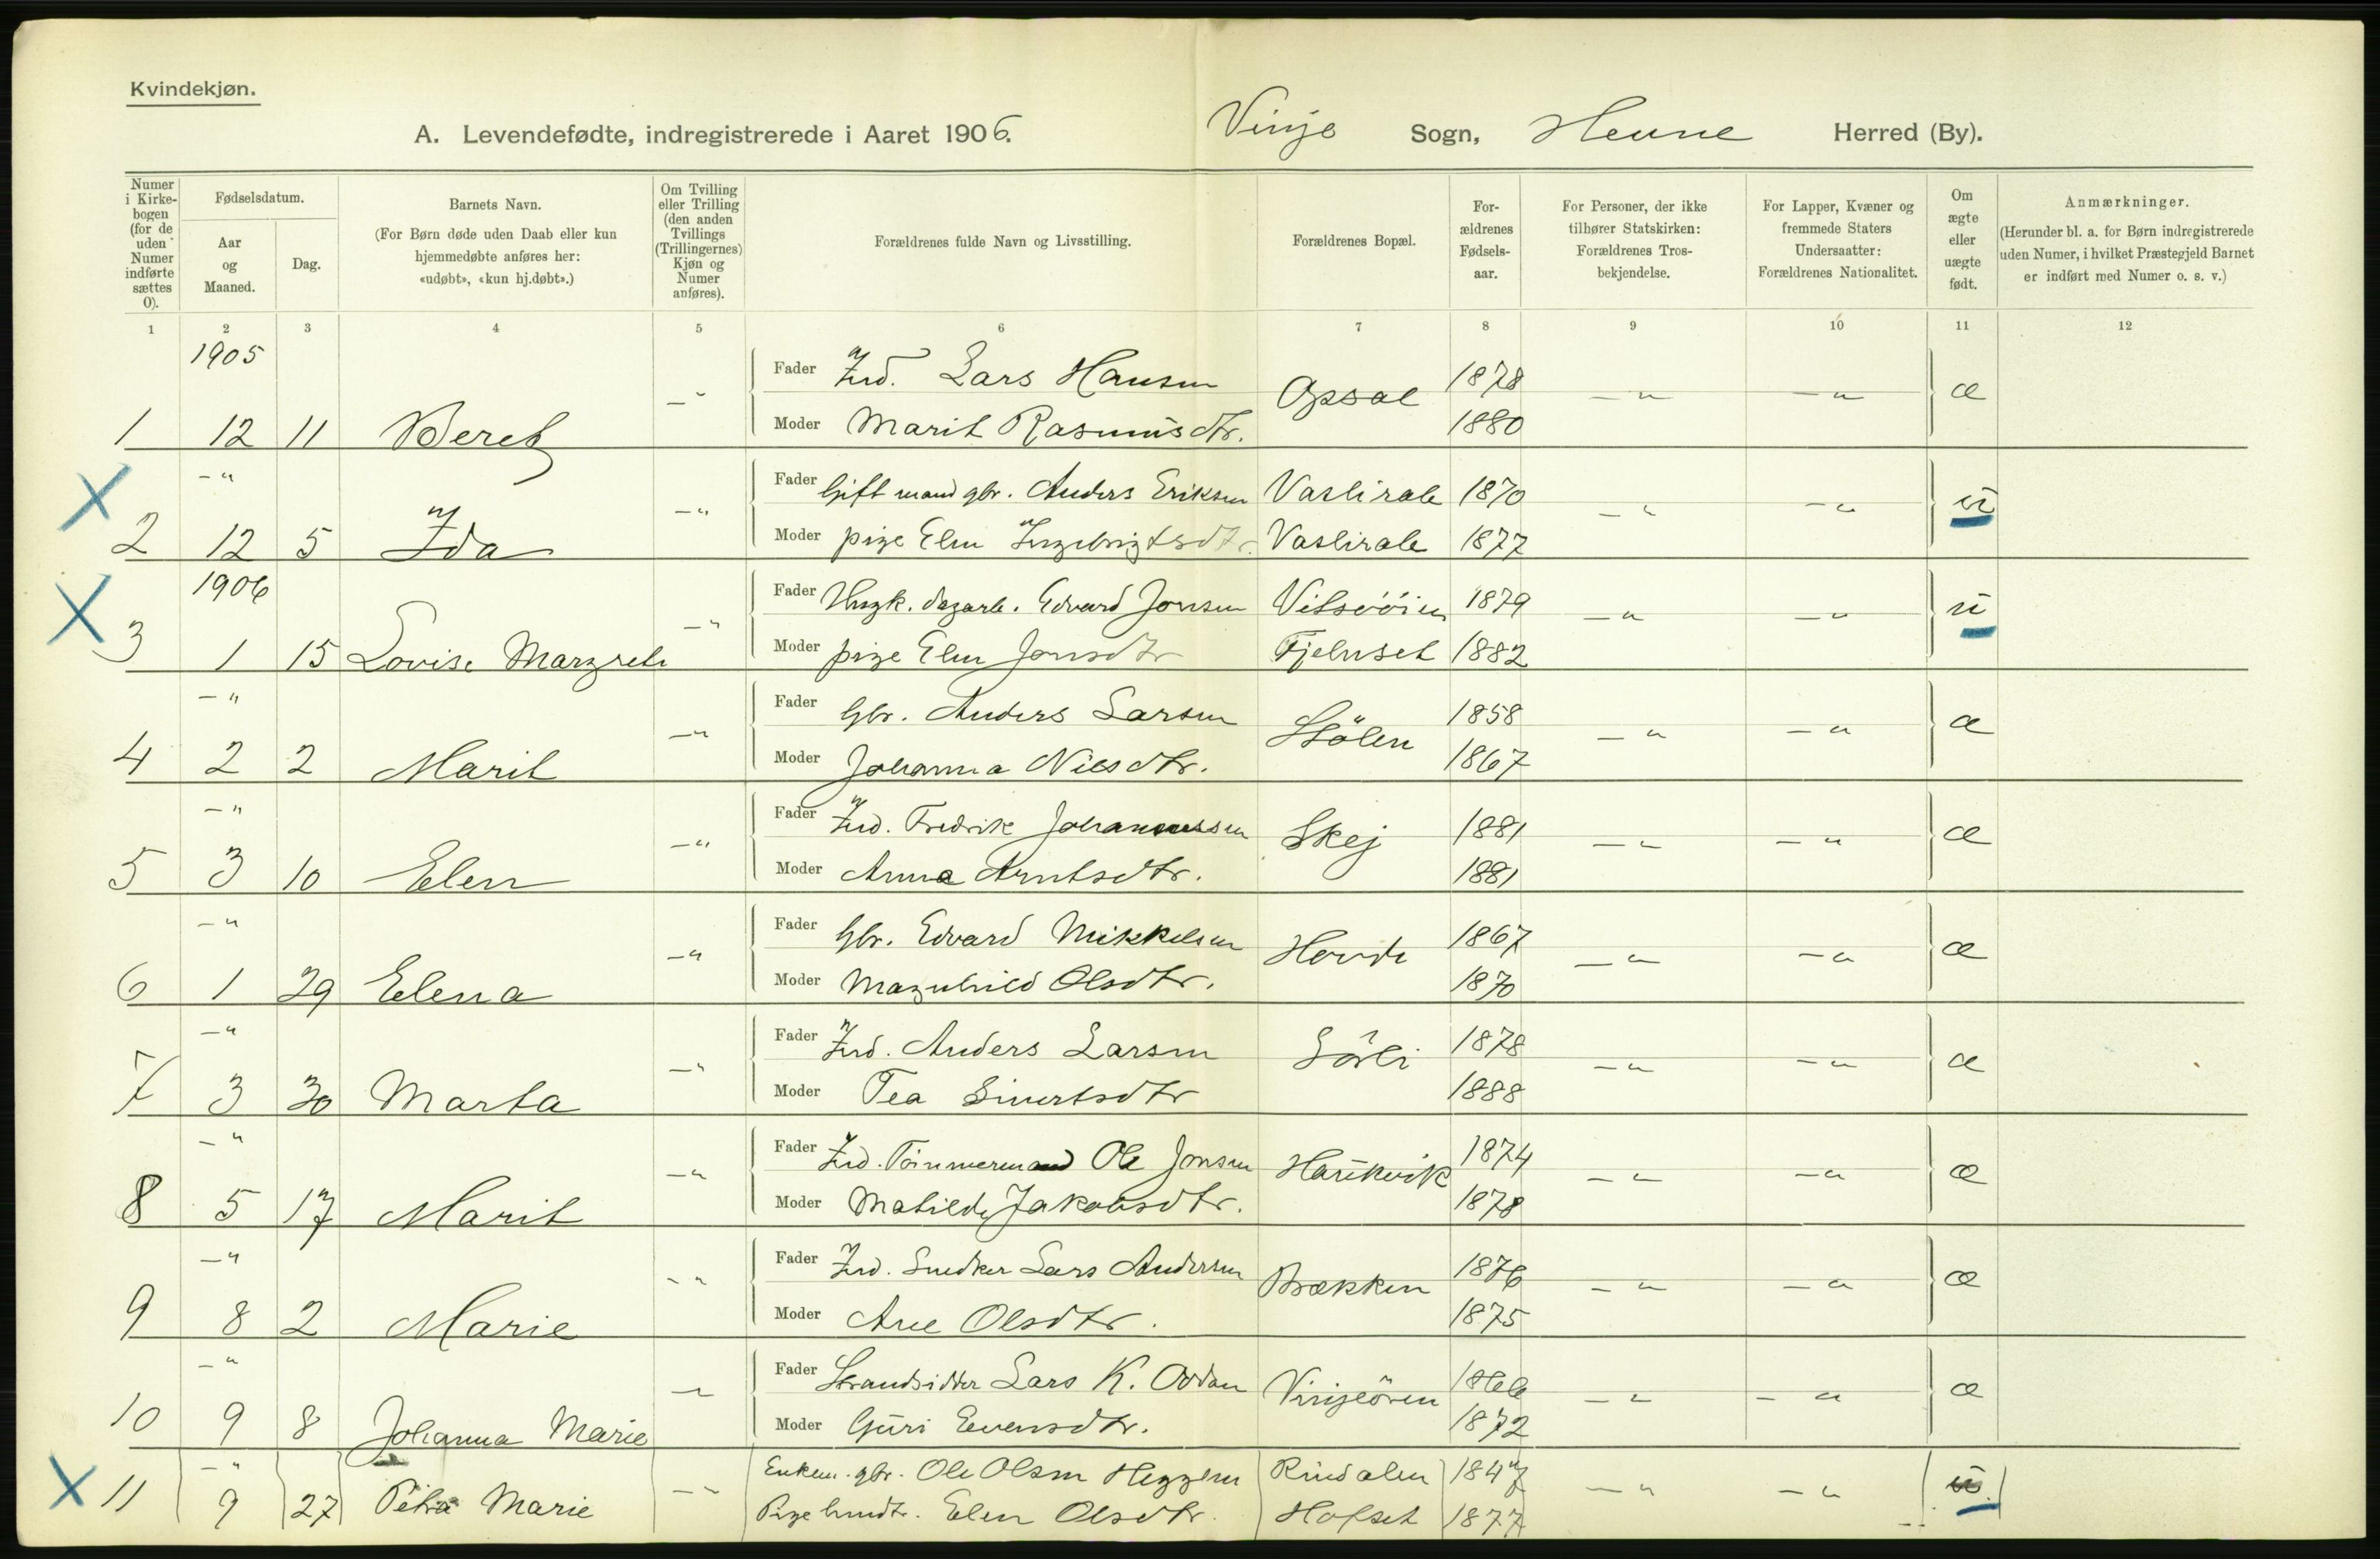 Kvindekjøn.
A. Levendefødte, indregistrerede i Aaret 1906. Vinje Sogn, Hevne Herred (By).
Numer i Kirkebogen (for de uden Numer indførte sættes 0).
Fødselsdatum.
Aar og Maaned.
Dag.
Barnets Navn.
(For Børn døde uden Daab eller kun hjemmedøbte anføres her: «udøbt», «kun hj.døbt».)
Om Tvilling eller Trilling (den anden Tvillings (Trillingernes) Kjøn og Numer anføres).
Forældrenes fulde Navn og Livsstilling.
Forældrenes Bopæl.
Forældrenes Fødselsaar.
For Personer, der ikke tilhører Statskirken: Forældrenes Trosbekjendelse.
For Lapper, Kvæner og fremmede Staters Undersaatter: Forældrenes Nationalitet.
Om ægte eller uægte født.
Anmærkninger.
(Herunder bl. a. for Børn indregistrerede uden Numer, i hvilket Præstegjeld Barnet er indført med Numer o. s. v.)
1 2 3 4 5 6 7 8 9 10 11 12
1905
Fader Ind. Lars Hansen Opsal 1878 –"– –"– æ
1 12 11 Beret –"– Moder Marit Rasmusdtr. 1880
–"– Fader Gift mand gbr. Anders Eriksen Vaslirale 1870 –"– –"– u
2 12 5 Ida –"– Moder pige Elen Ingebrigtsdtr. Vaslirale 1877
1906
Fader Ungk. dagarb. Edvard Jonsen Vitsøien 1879 –"– –"– u
3 1 15 Lovise Margrete –"– Moder pige Elen Jonsdtr Fjelnset 1882
–"– Fader Gbr. Anders Larsen Stölen 1858 –"– –"– æ
4 2 2 Marit –"– Moder Johanna Nilsdtr. 1867
–"– Fader Ind. Fredrik Johannessen Skej 1881 –"– –"– æ
5 3 10 Elen –"– Moder Anna Arntsdtr. 1881
–"– Fader Gbr. Edvard Mikkelsen Hovde 1867 –"– –"– æ
6 1 29 Elena –"– Moder Magnhild Olsdtr. 1870
–"– Fader Ind. Anders Larsen Sörli 1878 –"– –"– æ
7 3 30 Marta –"– Moder Tea Sivertsdtr 1888
–"– Fader Ind. Tömmermand Ole Jonsen Haukvik 1874 –"– –"– æ
8 5 17 Marit –"– Moder Matilde Jakobsdtr. 1878
–"– Fader Ind. Snedker Lars Andersen Brækken 1876 –"– –"– æ
9 8 2 Marie –"– Moder Ane Olsdtr. 1875
–"– Fader Strandsidder Lars K. Oddan Vinjeören 1866 –"– –"– æ
10 9 8 Johanna Marie –"– Moder Guri Evensdtr. 1872
–"– Enkem. gbr. Ole Olsen Heggem Rindalen 1847 –"– –"– u.
11 9 27 Petra Marie –"– Pige Elen Olsdtr. Hofset 1877